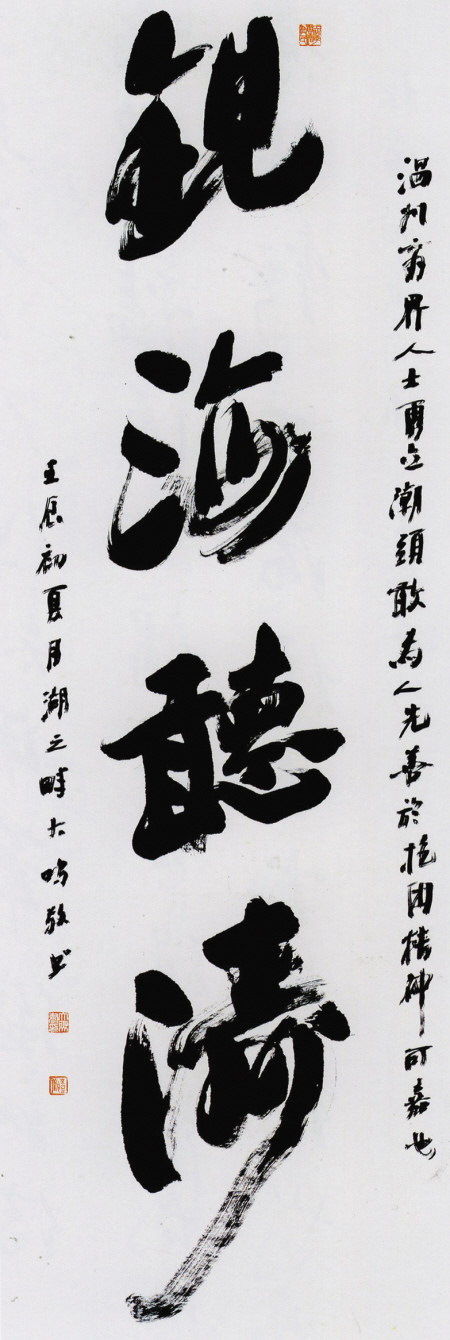 温州商界人士勇立潮頭敢為人先善於抱团精神可嘉也
觀海聽濤
壬辰初夏月湖之畔大鸣敬书